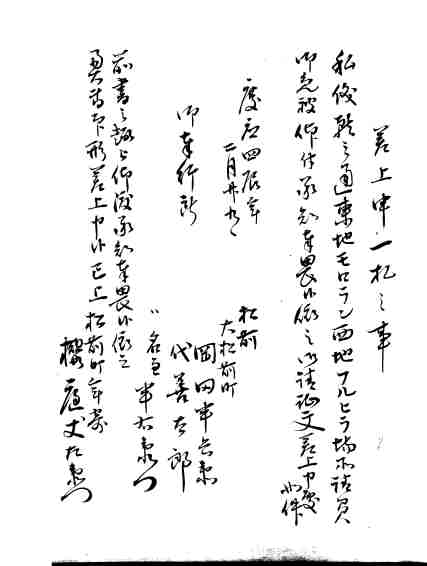 差上申一札之事
私儀願之通東地モロラン西地フルヒラ場所請負
御免被仰付承知奉畏候依之御請証文差上申処
如件
慶応四辰年
二月廿九日
御奉行所
松前
大松前町
岡田半兵衛
代善太郎
〃名主
半右衛門
前書之趣被仰渡承知奉畏候依之
奥書印形差上申候已上
松前町年寄
櫻庭丈左衛門